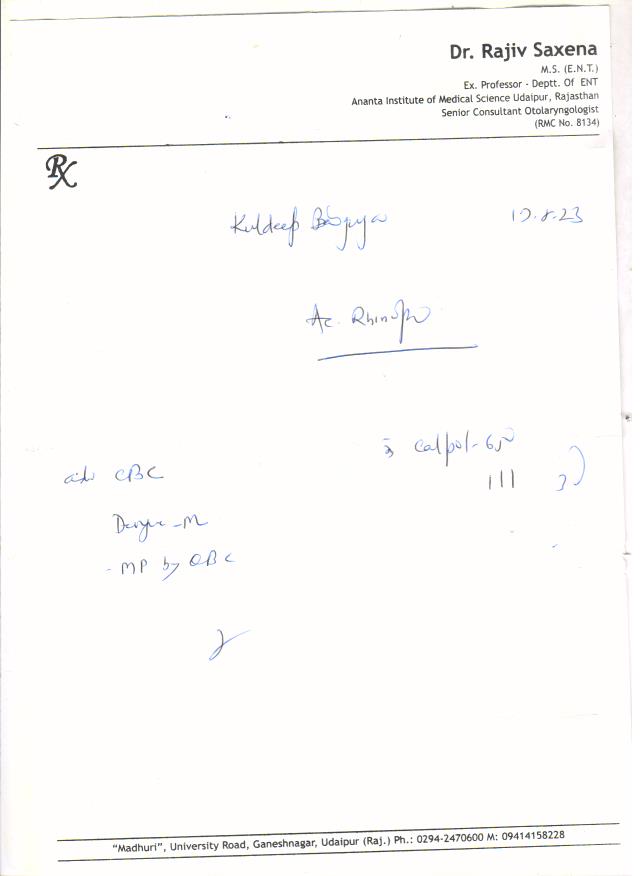 Dr. Rajiv Saxena
M.S. (E.N.T.)
Ex. Professor - Deptt. Of ENT
Ananta Institute of Medical Science Udaipur, Rajasthan
Senior Consultant Otolaryngologist
(RMC No. 8134)
Rx
Kuldeep
Ac.
Calpol-650
CBC
- MP by QBC
"Madhuri", University Road, Ganeshnagar, Udaipur (Raj.) Ph.: 0294-2470600 M: 09414158228